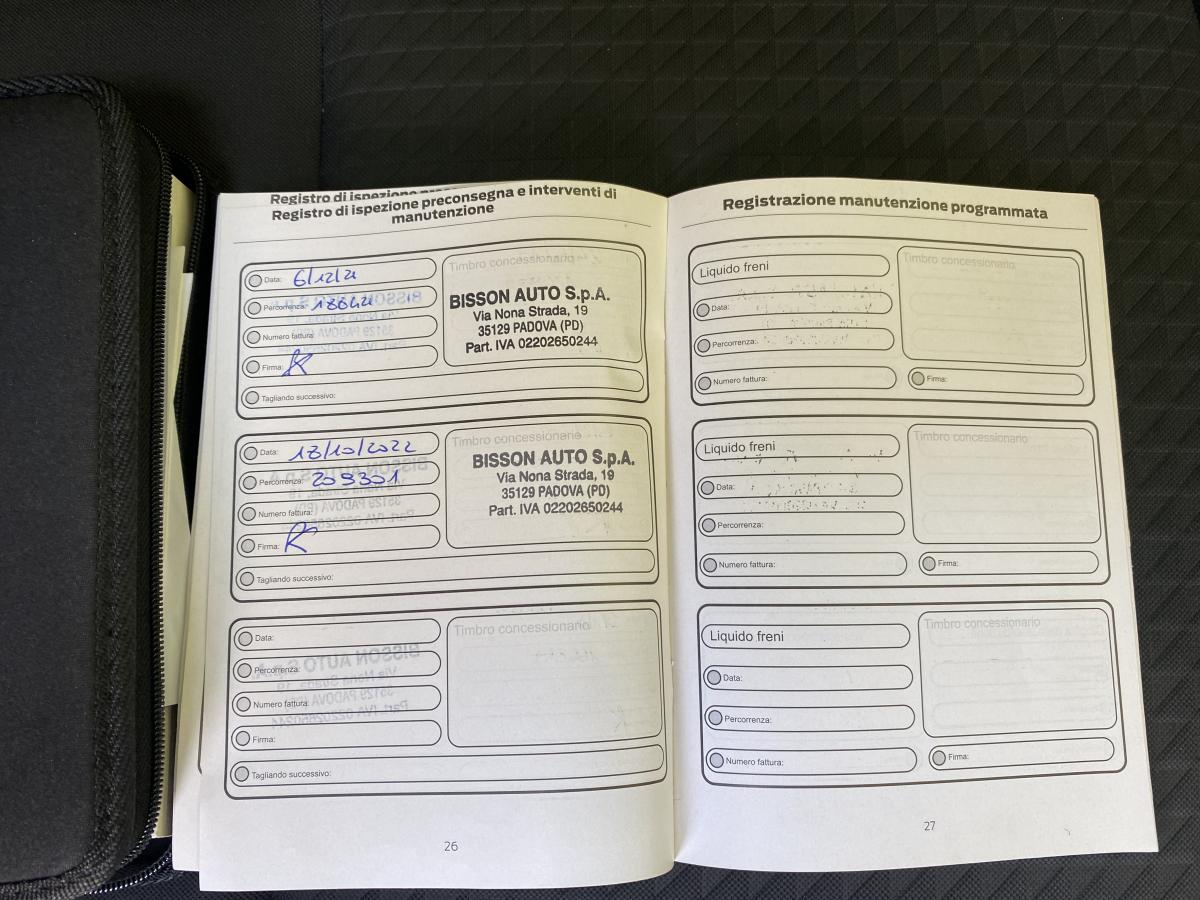 Registro di ispezione preconsegna e interventi di
Registro di ispezione preconsegna e interventi di
manutenzione
Data: 6/12/21
Percorrenza:
Numero fattura:
Firma:
Tagliando successivo:
Timbro concessionario
BISSON AUTO S.p.A.
Via Nona Strada, 19
35129 PADOVA (PD)
Part. IVA 02202650244
Data: 18/10/2022
Percorrenza: 209301
Numero fattura:
Firma:
Tagliando successivo:
Timbro concessionario
BISSON AUTO S.p.A.
Via Nona Strada, 19
35129 PADOVA (PD)
Part. IVA 02202650244
Data:
Percorrenza:
Numero fattura:
Firma:
Tagliando successivo:
Timbro concessionario
26
Registrazione manutenzione programmata
Liquido freni
Data:
Percorrenza:
Numero fattura:
Timbro concessionario
Firma:
Liquido freni
Data:
Percorrenza:
Numero fattura:
Timbro concessionario
Firma:
Liquido freni
Data:
Percorrenza:
Numero fattura:
Timbro concessionario
Firma:
27